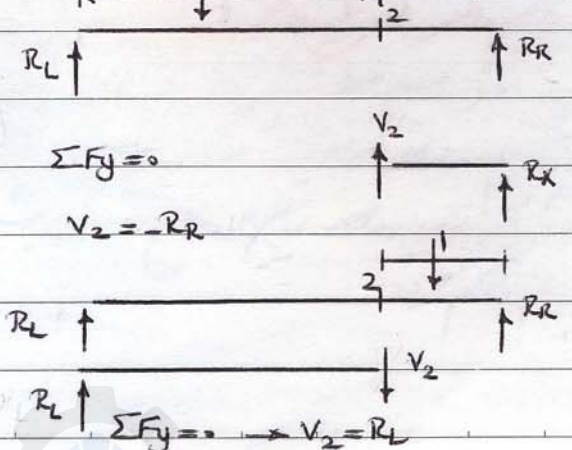 2
R_L R_R
V_2
ΣFy = 0 R_X
V_2 = -R_R
1
2
R_L R_R
V_2
R_L
ΣFy = 0 → V_2 = R_L